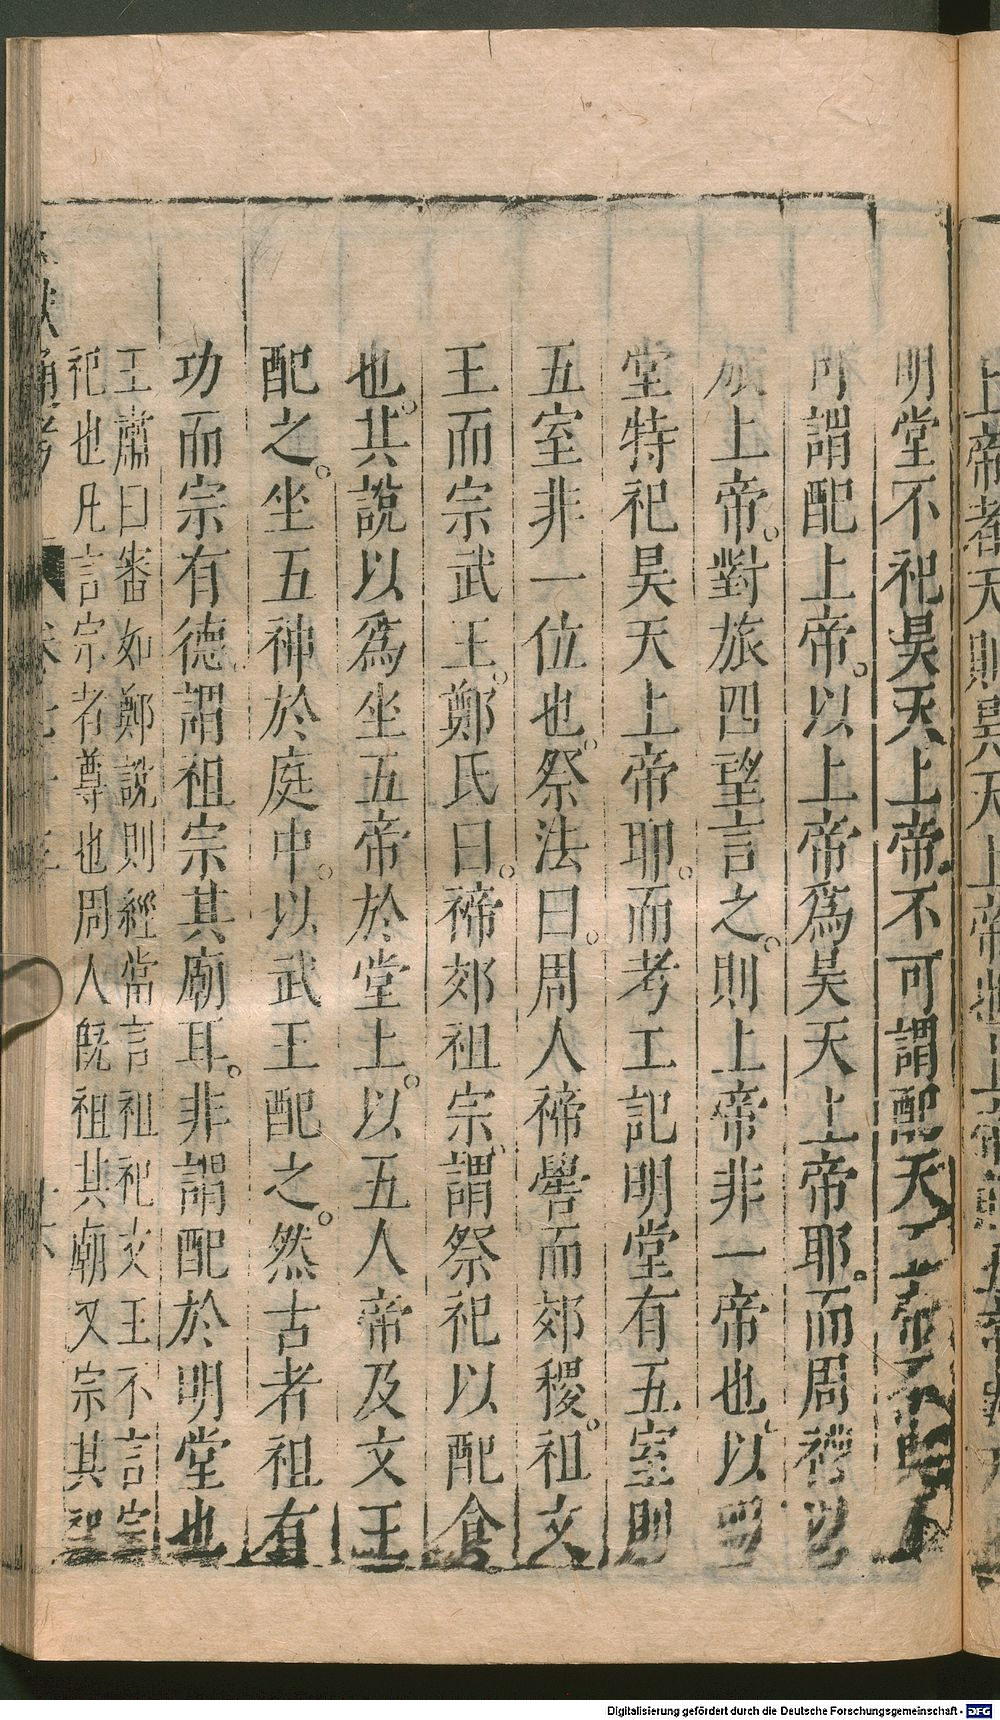 明堂不祀昊天上帝不可謂配天
可謂配上帝。以上帝爲昊天上帝耶。而周禮以
旅上帝。對旅四望言之。則上帝非一帝也。以四
堂特祀昊天上帝耶。而考工記明堂有五室則
五室非一位也。祭法曰。周人禘嚳而郊稷。祖文
王而宗武王。鄭氏曰。禘郊祖宗。謂祭祀以配食
也。其說以爲坐五帝於堂上。以五人帝及文王
配之。坐五神於庭中。以武王配之。然古者祖有
功而宗有德。謂祖宗其廟耳。非謂配於明堂也
王肅曰審如鄭說則經當言祖祀文王不言宗
祀也凡言宗者尊也周人旣祖其廟又宗其祀
Digitalisierung gefördert durch die Deutsche Forschungsgemeinschaft - DFG